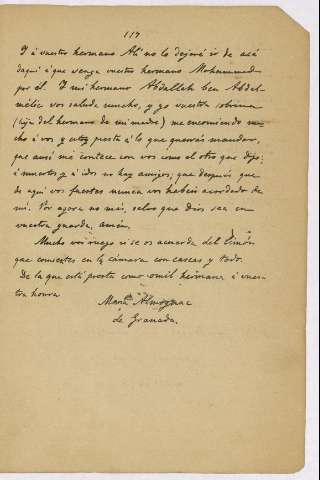 117
Y á vuestro hermano Alí no le dejaré ir de acá
daquí á que venga vuestro hermano Mohammed
por él. Y mi hermano Abdallah ben Abdel-
mélic vos saluda mucho, y yo vuestra sobrina
(hija del hermano de mi madre) me encomiendo mu-
cho á vos y estoy presta á lo que querrás mandarme,
que ansí me contece con vos como el otro que dijo:
á muertos y á idos no hay amigos; que después que
de aquí vos fuestes nunca vos habéis acordado de
mí. Por agora no más, salvo que Dios sea en
vuestra guarda, amén.
Mucho vos ruego si se os acuerda del limón
que comistes en la cámara con cascas y todo.
De la que está presta como omil hermana á vues-
tra honra
Marⁿ Almoznac
de Granada.